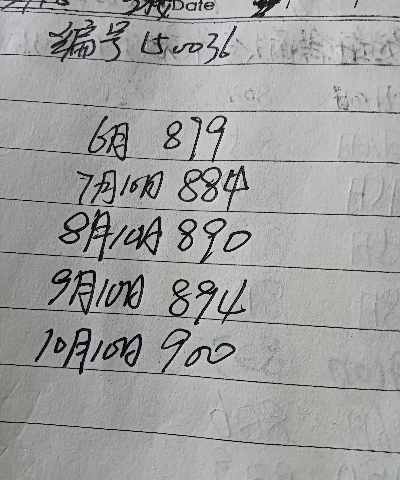 Date
编号 150036
6月 879
7月10日 884
8月10日 890
9月10日 894
10月10日 900